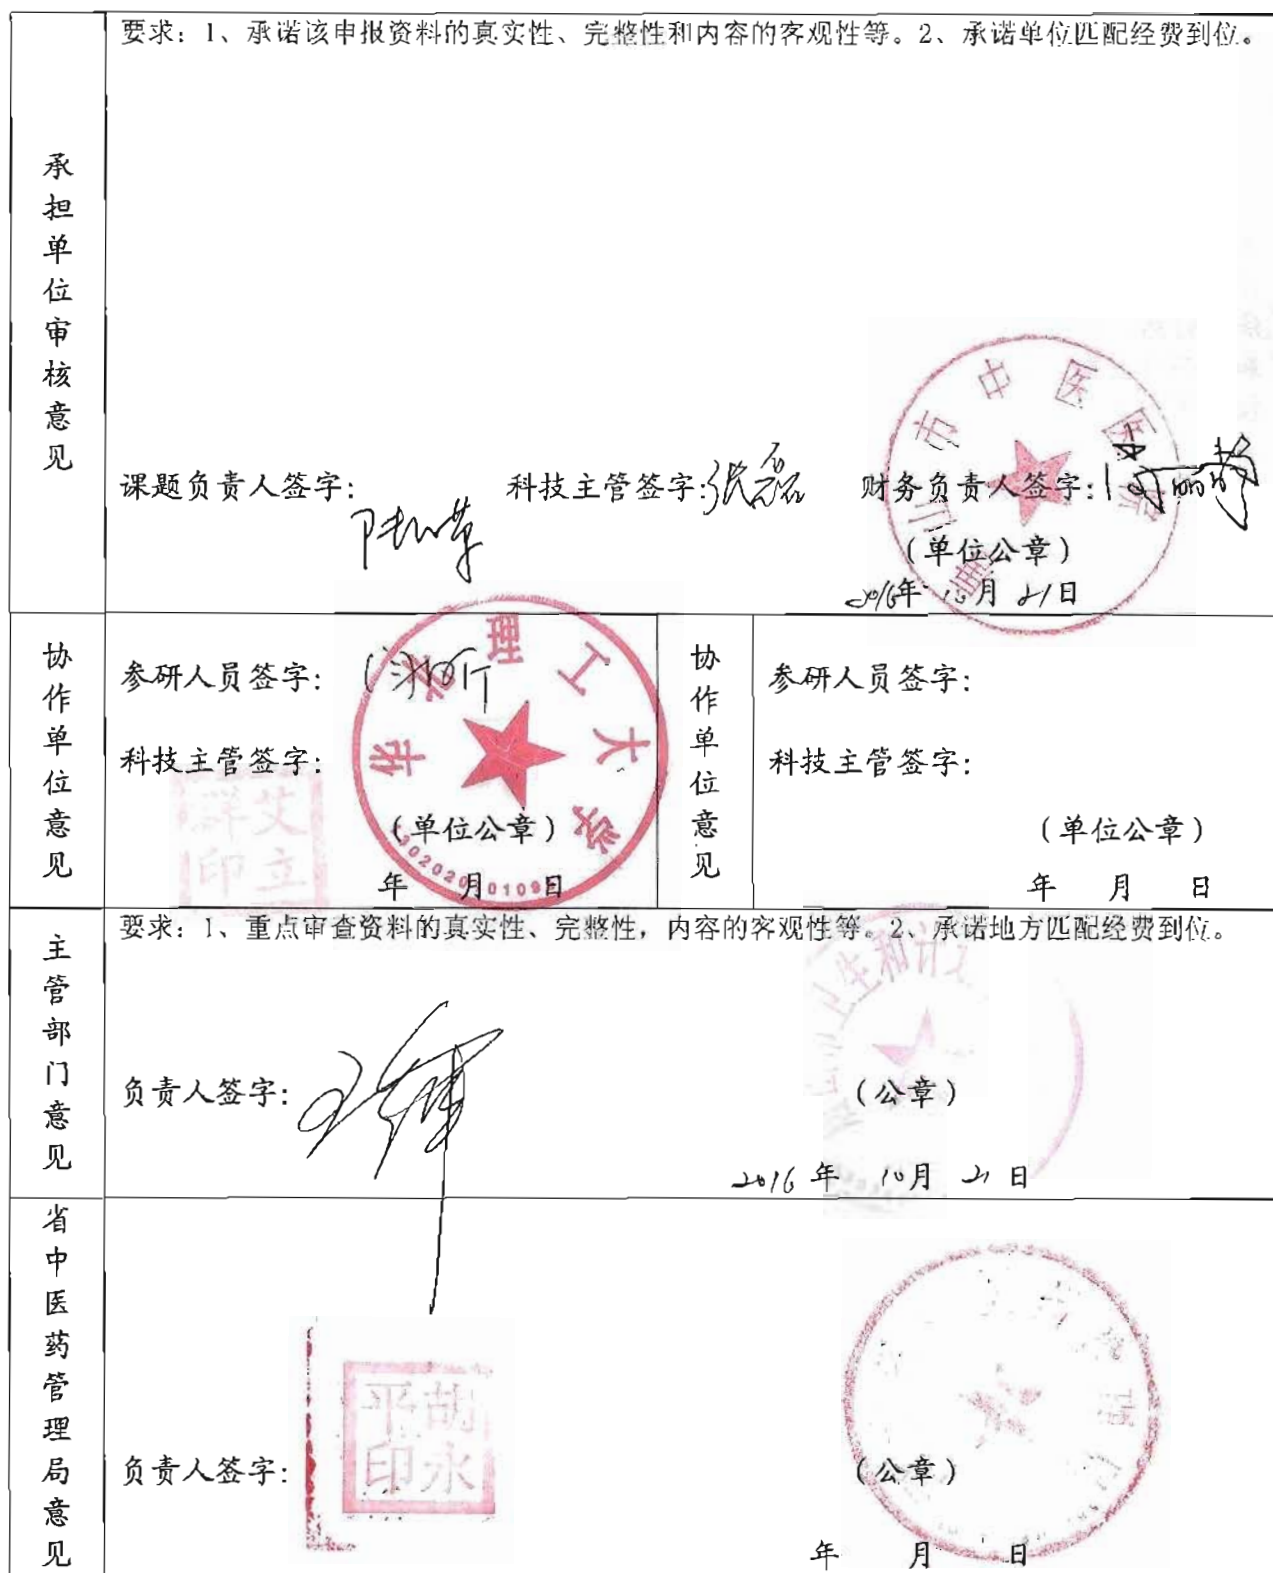 承担单位审核意见
要求：1、承诺该申报资料的真实性、完整性和内容的客观性等。2、承诺单位匹配经费到位。
课题负责人签字： 科技主管签字：张磊 财务负责人签字：
市中医医院
（单位公章）
2016年10月21日
协作单位意见
参研人员签字：
科技主管签字：
艾立群印
华北理工大学
（单位公章）
年 月 日
协作单位意见
参研人员签字：
科技主管签字：
（单位公章）
年 月 日
主管部门意见
要求：1、重点审查资料的真实性、完整性，内容的客观性等。2、承诺地方匹配经费到位。
负责人签字：
卫生和计
（公章）
2016年 10月 21日
省中医药管理局意见
负责人签字：
胡永平印
（公章）
年 月 日